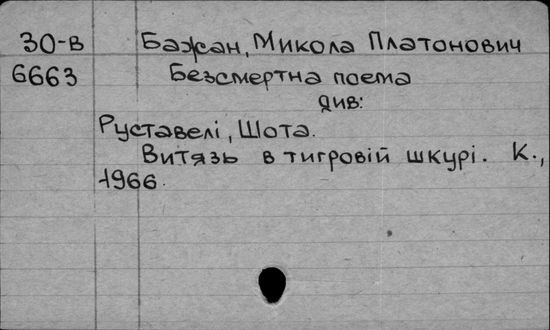 30-в Бажан, Микола Платонович
6663 Безсмертна поема
див:
Руставелі, Шота.
Витязь в тигровій шкурі. К.,
1966.